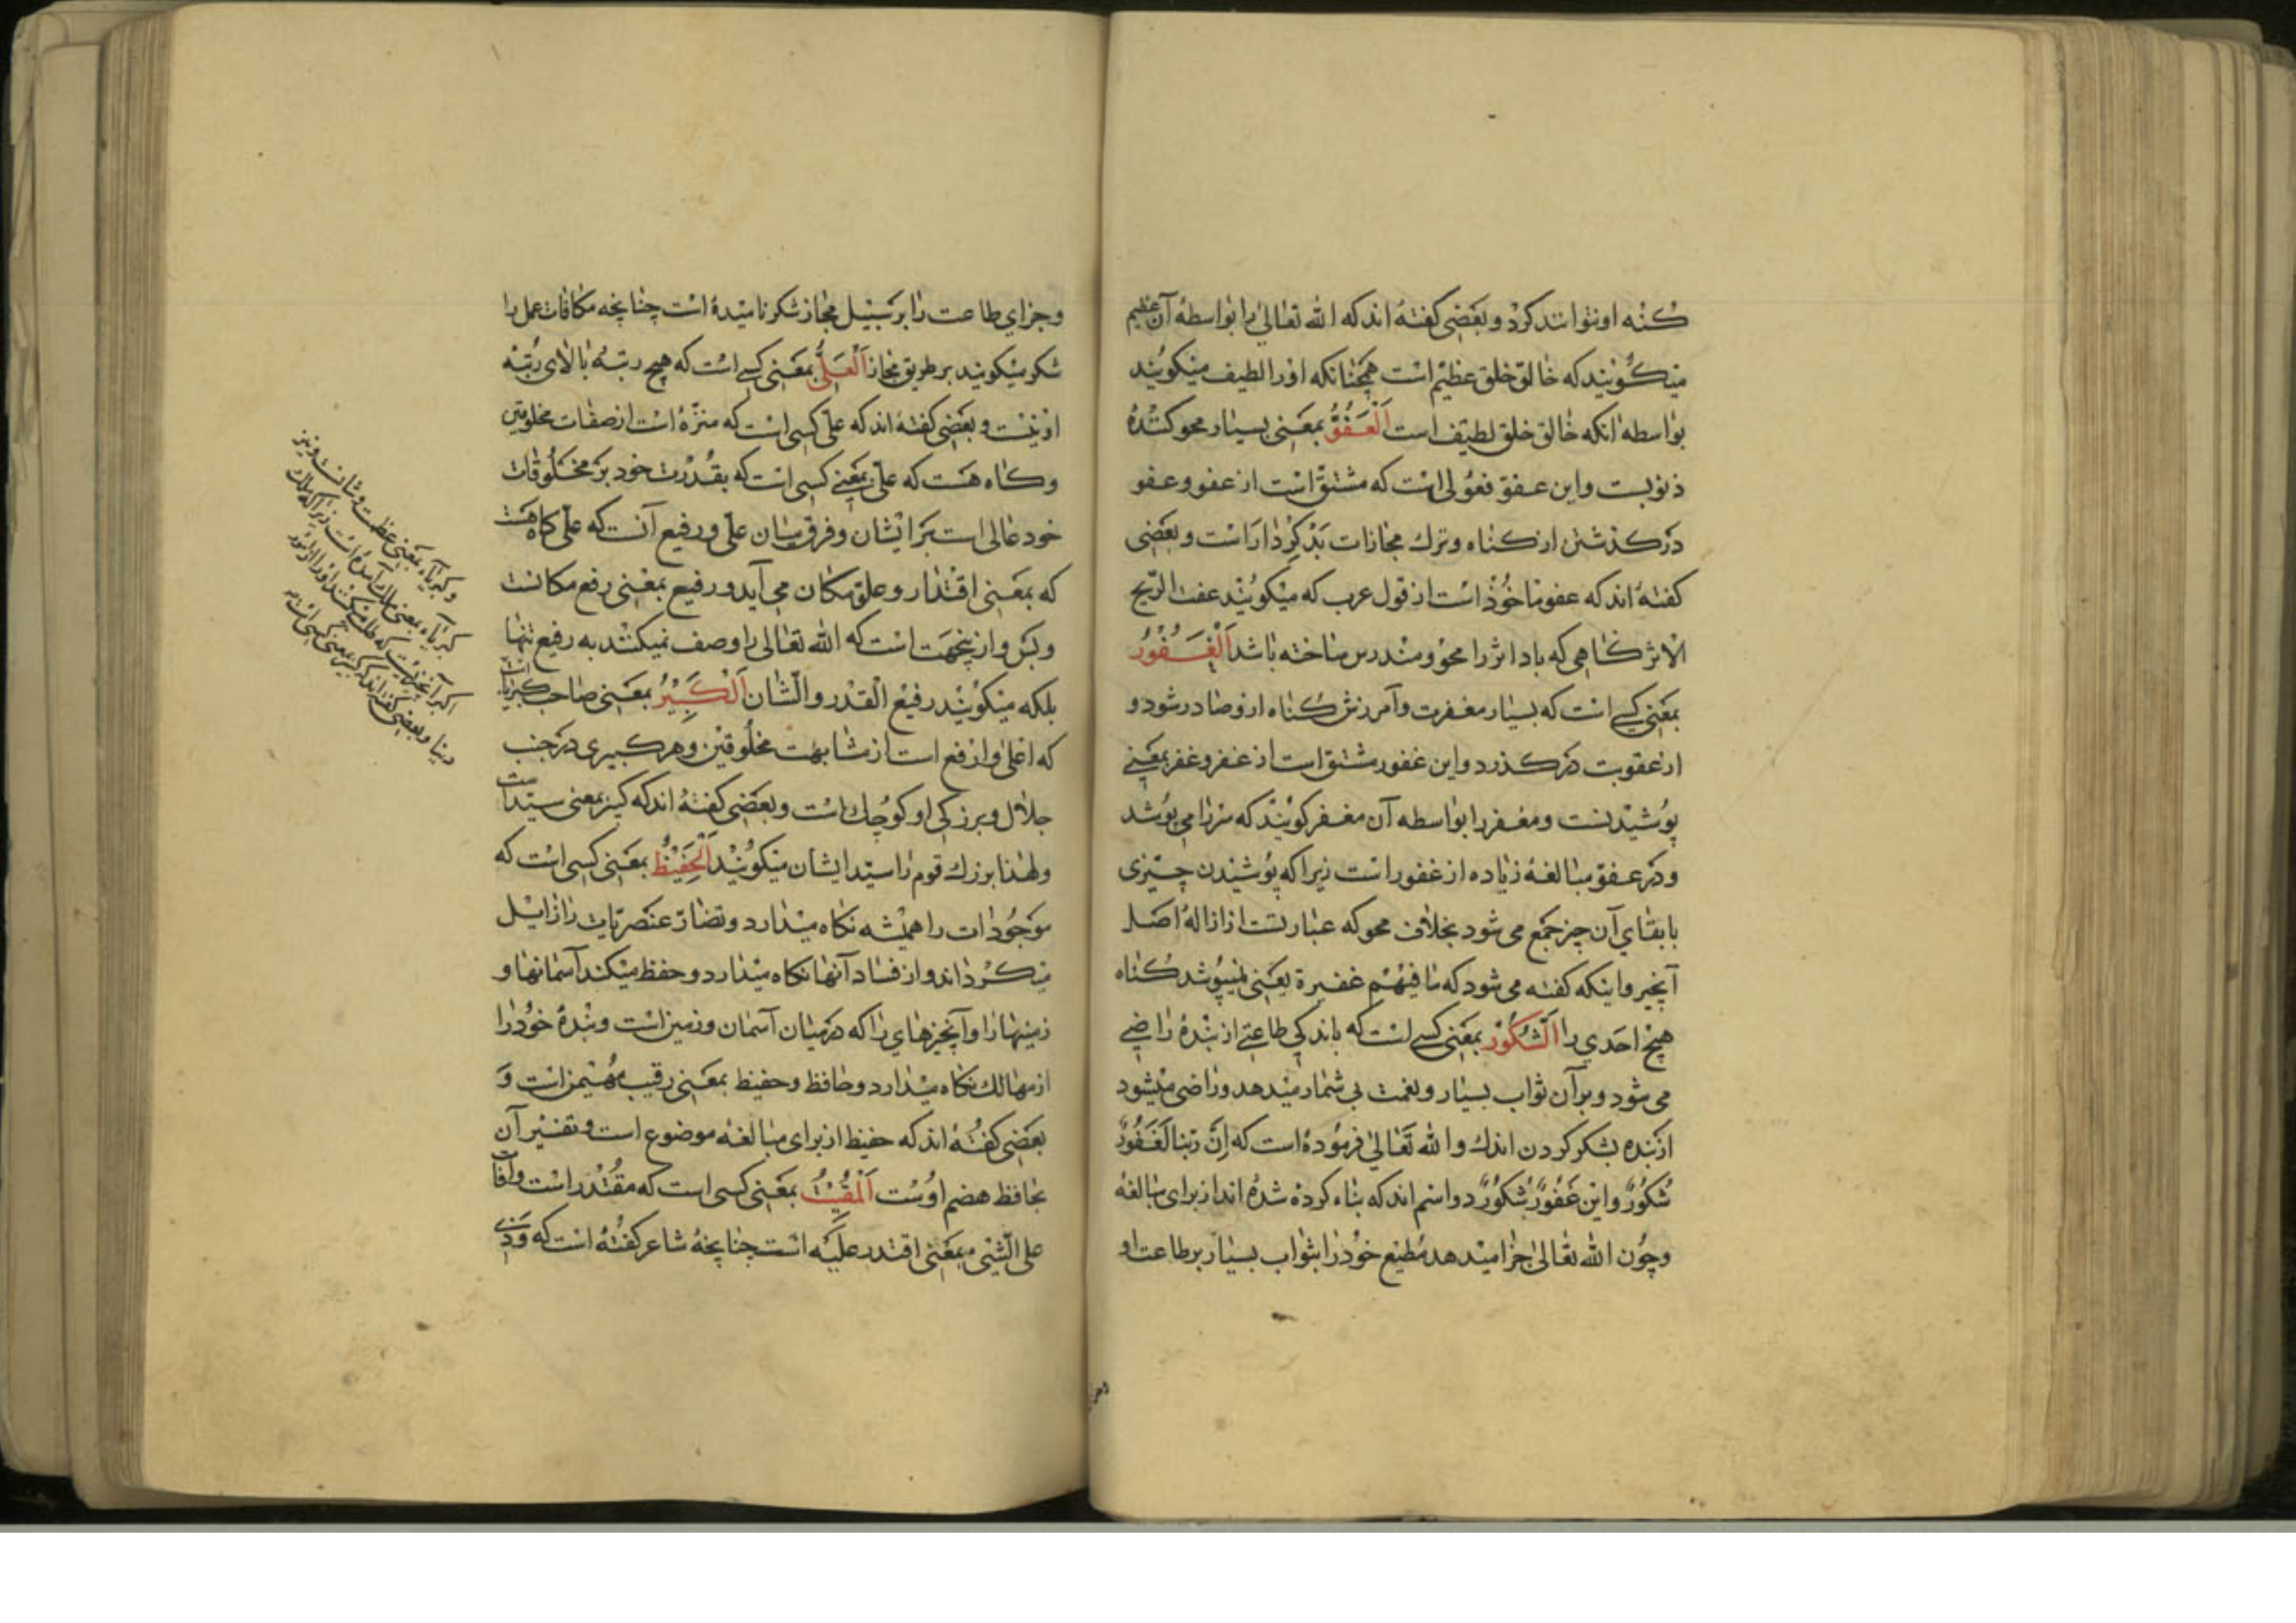 كنه او نتوانند كرد و بعضى كفته اند كه الله تعالى را بواسطه آن عظيم
ميكويند كه خالق خلق عظيم است همچنانكه او را لطيف ميكويند
بواسطه انكه خالق خلق لطيف است اَلْعَفُوُّ بمعنى بسيار محو كننده
ذنوبست و اين عفو فعولى است كه مشتق است از عفو و عفو
در كذشتن از كناه و ترك مجازات بدكردار است و بعضى
كفته اند كه عفو ماخوذ است از قول عرب كه ميكويند عفت الريح
الاثر كاهى كه باد اثر را محو و مندرس ساخته باشد اَلْغَفُورُ
بمعنى كسى است كه بسيار مغفرت و آمرزش كناه از و صادر شود و
از عقوبت در كذرد و اين غفور مشتق است از غفر و غفر بمعنى
پوشيدنست و مغفر را بواسطه آن مغفر كويند كه سر را مى پوشد
و در عفو مبالغه زياده از غفور است زيرا كه پوشيدن چيزى
با بقاى آن چيز جمع مى شود بخلاف محو كه عبارتست از ازاله اصل
آنچيز و اينكه كفته مى شود كه ما فيهم غفيرة يعنى نميپوشد كناه
هيچ احدى را اَلشَّكُورُ بمعنى كسى است كه باندكى طاعتى از بنده راضى
مى شود و بر آن ثواب بسيار و نعمت بى شمار ميدهد و راضى ميشود
از بنده بشكر كردن اندك و الله تعالى فرموده است كه اِنَّ ربنا لَغَفُورٌ
شَكُورٌ و اين غَفُورٌ شَكُورٌ دو اسم اند كه بناء كرده شده اند از براى مبالغه
و چون الله تعالى جزا ميدهد مطيع خود را بثواب بسيار بر طاعت او
و جزاي طاعت را بر سبيل مجاز شكر ناميده است چنانچه مكافات عمل را
شكر ميكويند بر طريق مجاز اَلْعَلِىُّ بمعنى كسى است كه هيچ رتبه بالاى رتبه
او نيست و بعضى كفته اند كه على كسى است كه منزه است از صفات مخلوقين
و كاه هست كه على بمعنى كسى است كه بقدرت خود بر مخلوقات
خود عالى است بر ايشان و فرق ميان على و رفيع آنست كه على كاه هست
كه بمعنى اقتدار و علو مكان مى آيد و رفيع بمعنى رفع مكانست
و بس و از ينجهت است كه الله تعالى را وصف نميكنند به رفيع تنها
بلكه ميكويند رفيع القدر و الشان اَلْكَبِيْرُ بمعنى صاحب كبريا است
كه اعلى و ارفع است از مشابهت مخلوقين و هر كبيرى در جنب
جلال و بزركى او كوچك است و بعضى كفته اند كه كبير بمعنى سيد است
و لهذا بزرك قوم را سيد ايشان ميكويند اَلْحَفِيْظُ بمعنى كسى است كه
موجودات را هميشه نكاه ميدارد و تضاد عنصريات را زايل
ميكرداند و از فساد آنها نكاه ميدارد و حفظ ميكند آسمانها و
زمينها را و آنچيزهاي را كه در ميان آسمان و زمين است و بنده خود را
از مهالك نكاه ميدارد و حافظ و حفيظ بمعنى رقيب مهيمن است و
بعضى كفته اند كه حفيظ از براى مبالغه موضوع است و تفسير آن
بحافظ هضم اوست اَلْمُقِيْتُ بمعنى كسى است كه مقتدر است و اقات
على الشئ بمعنى اقتدر عليه است چنانچه شاعر كفته است كه وَذِى
و كبرياء بمعنى عظمت و شانست و نيز
كبرياء بمعنى ملك آمده است زيرا كه ملك
اكبر آنچيزيست كه طلب ميكنند او را از امور
دنيا و بعضى كفته اند كه كبير بمعنى كسى است كه